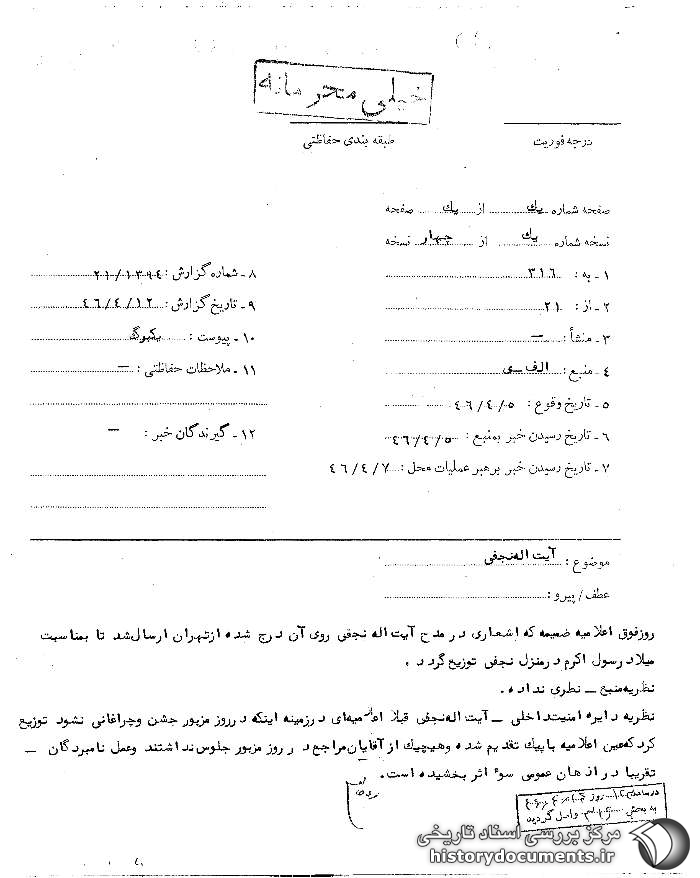 خیلی محرمانه
درجه فوریت
طبقه بندی حفاظتی
صفحه شماره یک از یک صفحه
نسخه شماره یک از چهار نسخه
۱ - به : ۳۱۶
۲ - از : ۲۱
۳ - منشأ : —
۴ - منبع : الف – ی
۵ - تاریخ وقوع : ۴۶/۴/۵
۶ - تاریخ رسیدن خبر بمنبع : ۴۶/۴/۵
۷ - تاریخ رسیدن خبر برهبر عملیات محل : ۴۶/۴/۷
۸ - شماره گزارش : ۲۱/۱۳۹۴
۹ - تاریخ گزارش : ۴۶/۴/۱۲
۱۰ - پیوست : یکبرگ
۱۱ - ملاحظات حفاظتی : —
۱۲ - گیرندگان خبر : —
موضوع : آیت اله نجفی
عطف / پیرو :
روزفوق اعلامیه ضمیمه که اشعاری در مدح آیت اله نجفی روی آن درج شده ازتهران ارسال شد تا بمناسبت
میلاد رسول اکرم درمنزل نجفی توزیع گردد .
نظریه منبع – نظری نداده .
نظریه دایره امنیت داخلی – آیت اله نجفی قبلا اعلامیه‌ای درزمینه اینکه درروز مزبور جشن وچراغانی نشود توزیع
کرد که عین اعلامیه باپیک تقدیم شده وهیچیک از آقایان مراجع در روز مزبور جلوس نداشتند وعمل نامبردگان –
تقریبا در اذهان عمومی سوء اثر بخشیده است .
روز
به بخش واصل گردید
مرکز بررسی اسناد تاریخی
historydocuments.ir